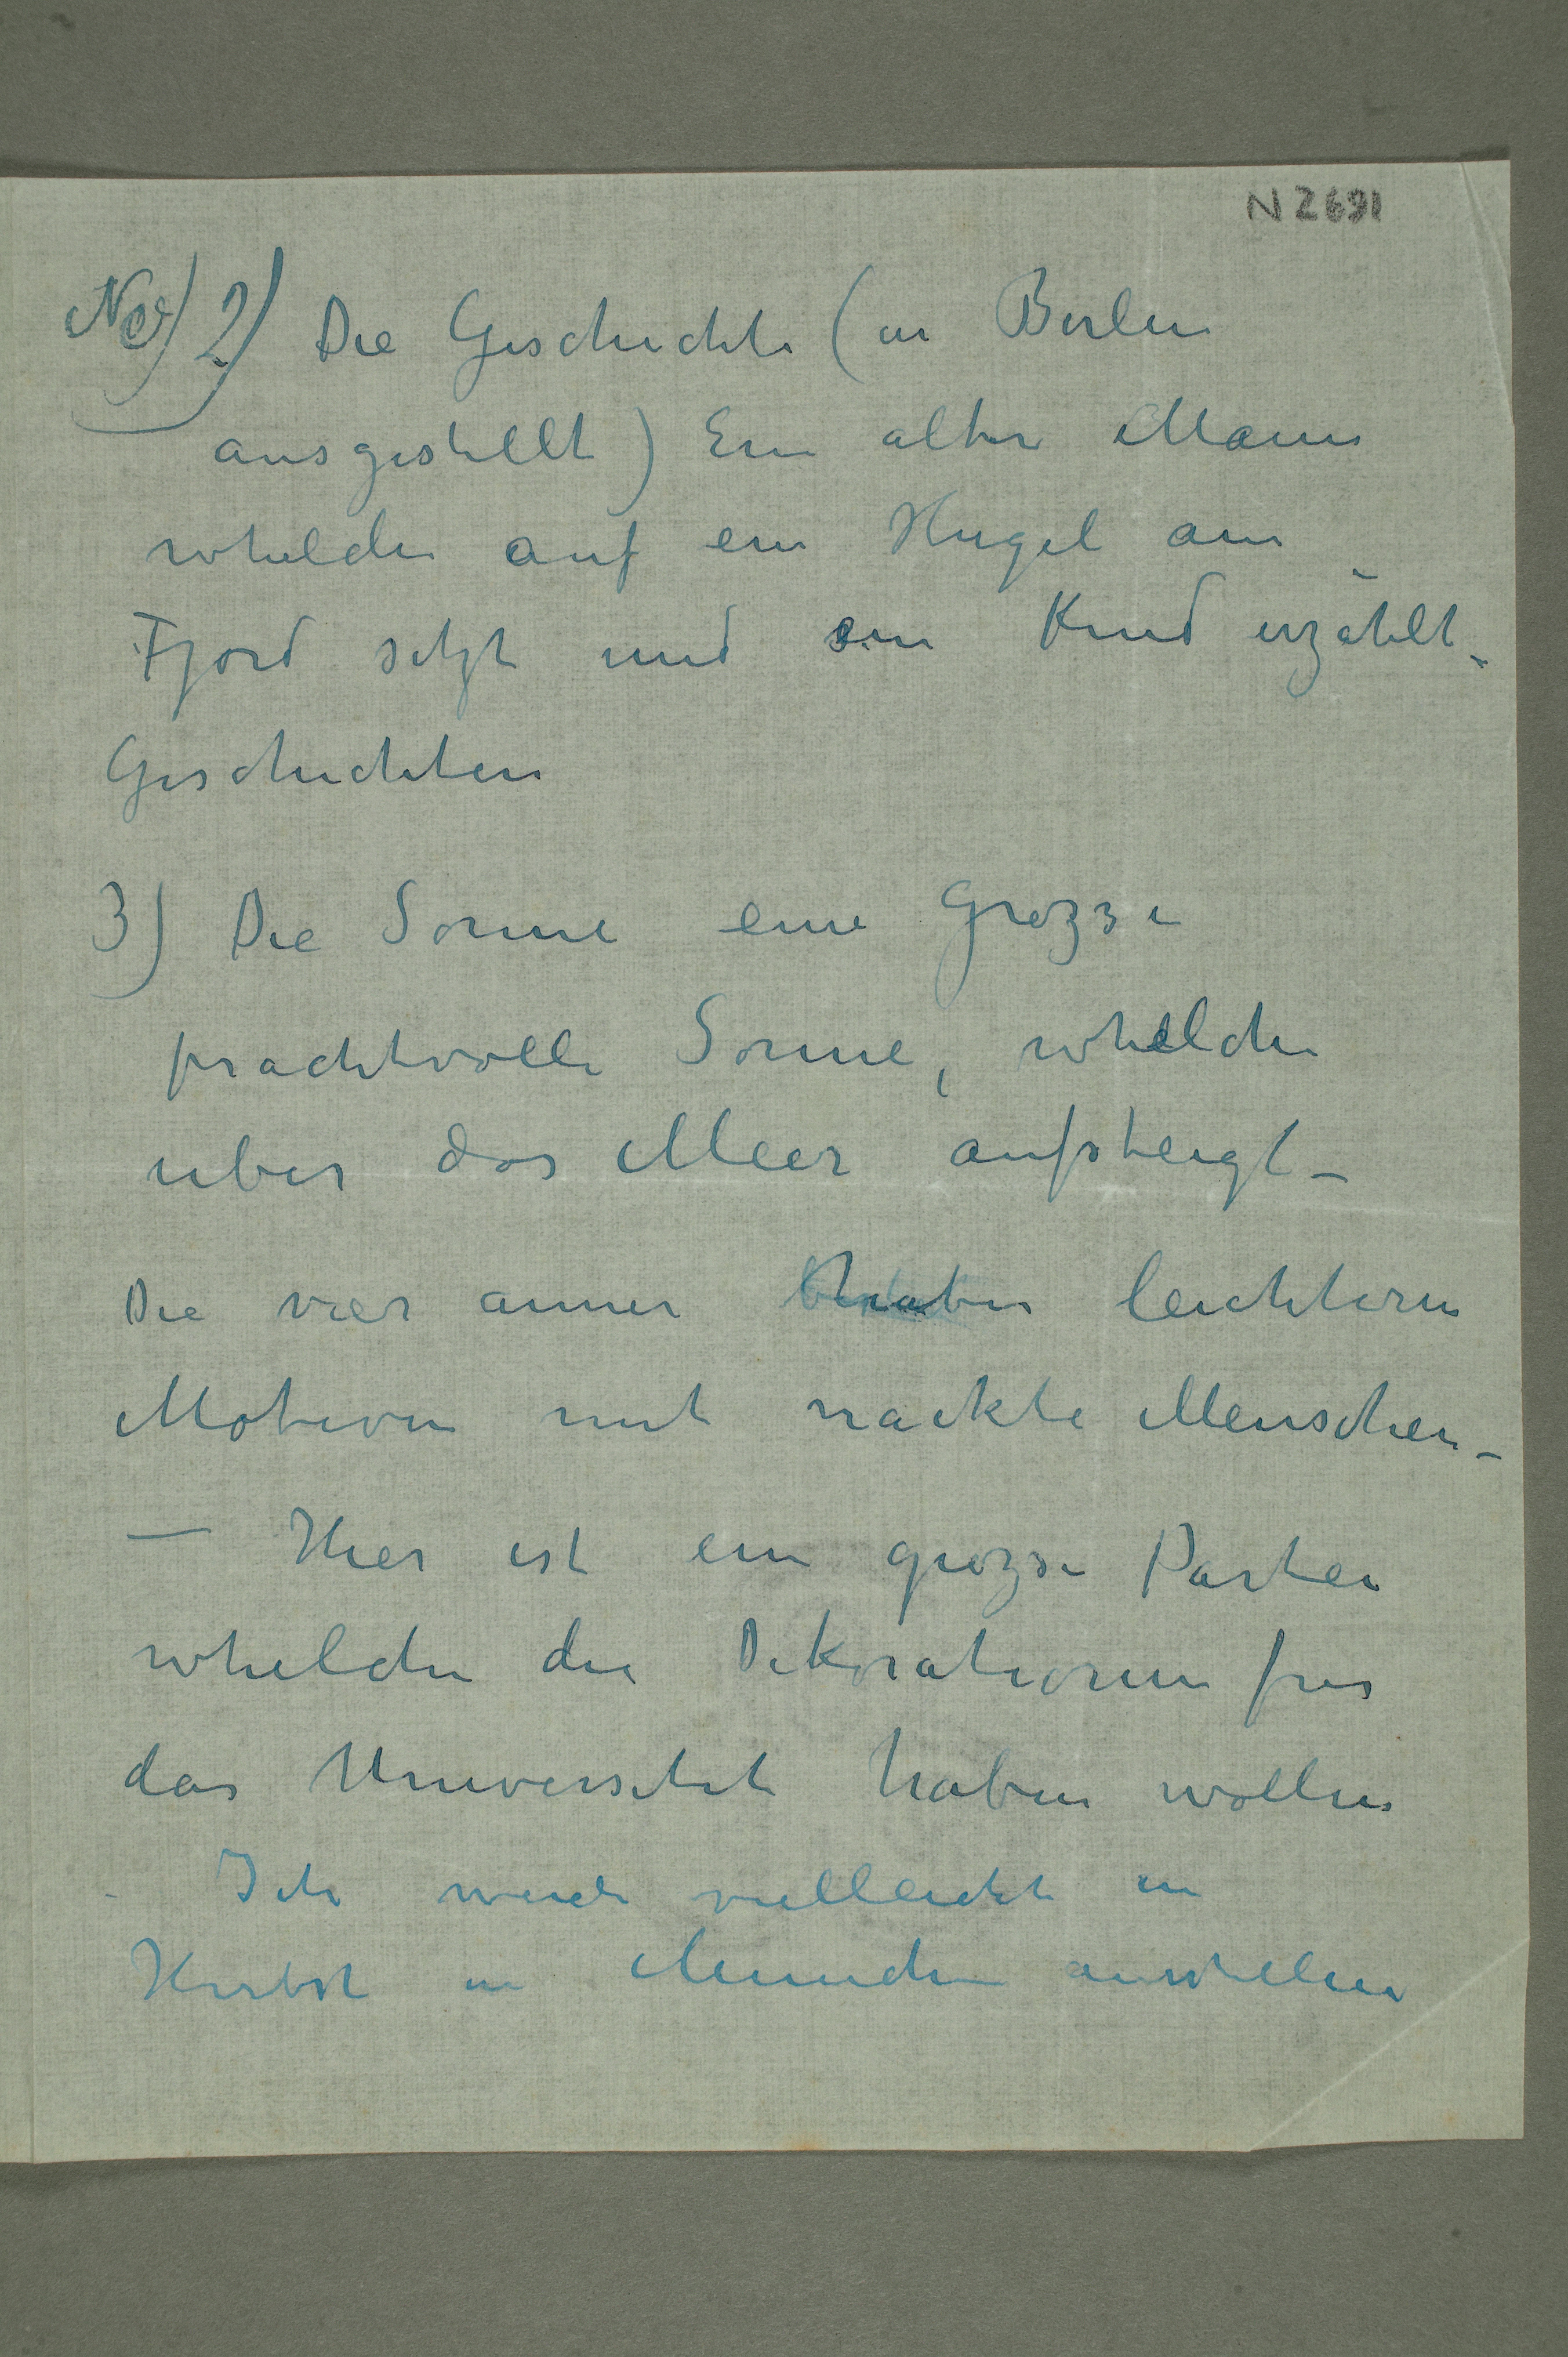 N 2691
No) 2) Die Geschichte (in Berlin
ausgestellt) Ein alter Mann
whelche auf ein Hugel am
Fjord sitzt und ein Kind erzählt –
Geschichten
3) Die Sonne eine grozse
prachtvolle Sonne, whelche
uber das Meer aufsteigt –
Die vier anner haben leichteren
Motiven mit nackte Menschen –
– Hier ist ein grozse Partei
whelche die Dekorationen fur
das Universitet haben wollen
Ich werde vielleicht in
Herbst in Munchen austellen